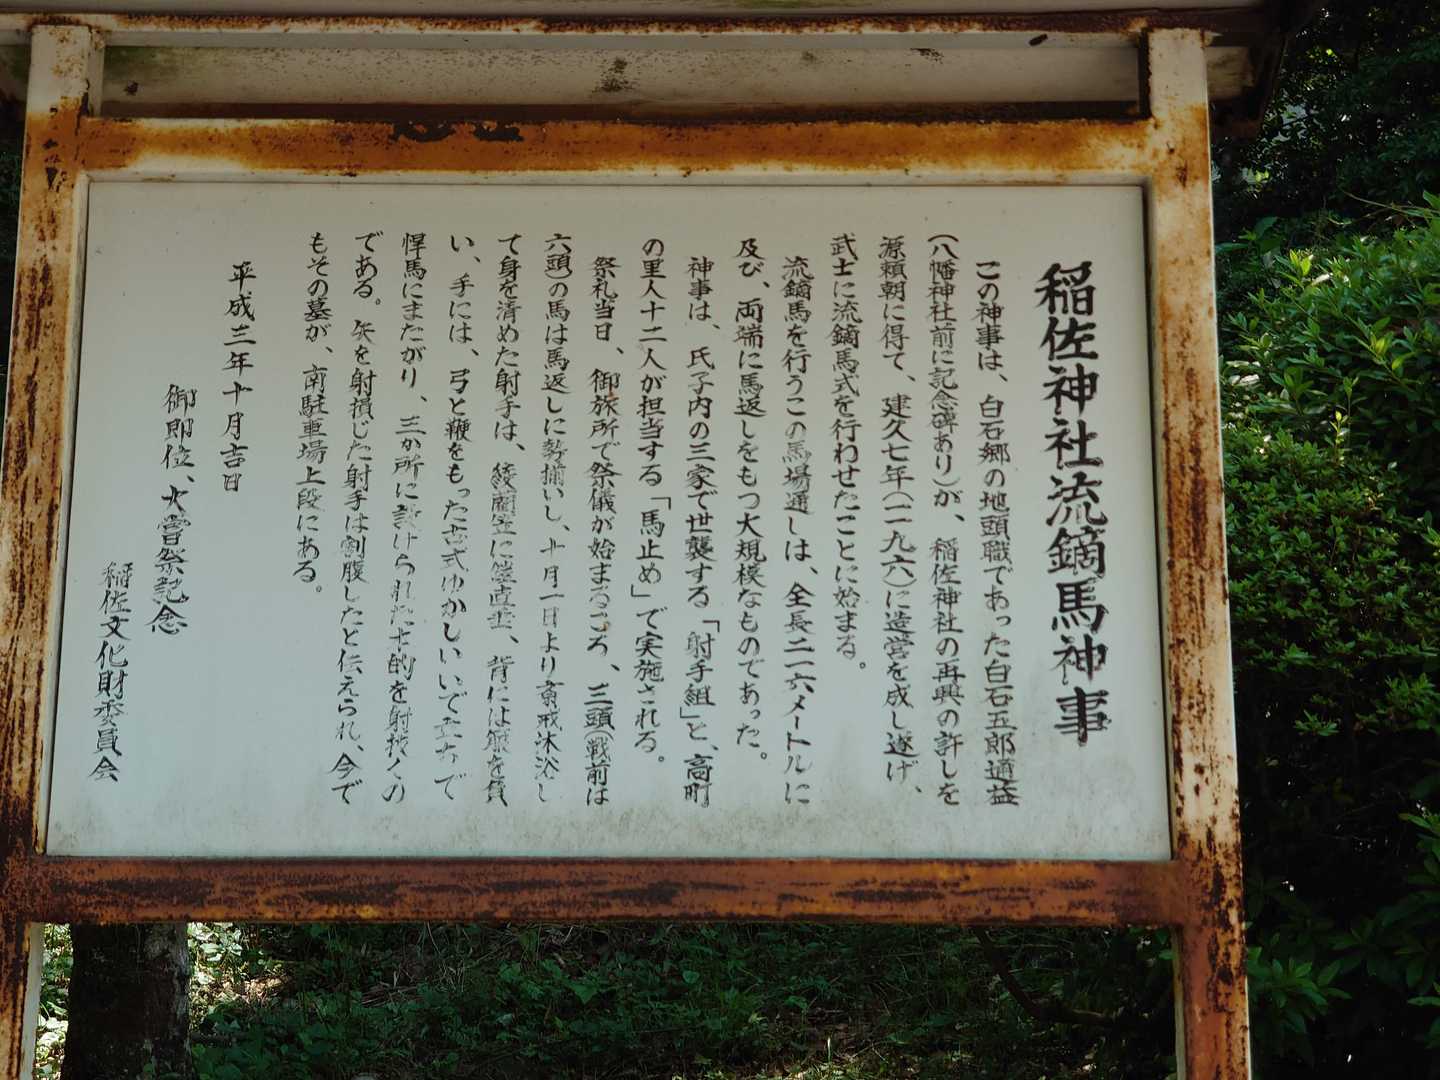 稲佐神社流鏑馬神事
この神事は、白石郷の地頭職であった白石五郎通益
(八幡神社前に記念碑あり)が、稲佐神社の再興の許しを
源頼朝に得て、建久七年(一一九六)に造営を成し遂げ、
武士に流鏑馬式を行わせたことに始まる。
流鏑馬を行うこの馬場通しは、全長二一六メートルに
及び、両端に馬返しをもつ大規模なものであった。
神事は、氏子内の三家で世襲する「射手組」と、高町
の里人十二人が担当する「馬止め」で実施される。
祭礼当日、御旅所で祭儀が始まるころ、三頭(戦前は
六頭)の馬は馬返しに勢揃いし、十月一日より斎戒沐浴し
て身を清めた射手は、綾藺笠に鎧直垂、背には箙を負
い、手には、弓と鞭をもった古式ゆかしいいで立ちで
悍馬にまたがり、三か所に設けられた士的を射抜くの
である。矢を射損じた射手は割腹したと伝えられ、今で
もその墓が、南駐車場上段にある。
平成三年十月吉日
御即位、大嘗祭記念
稲佐文化財委員会